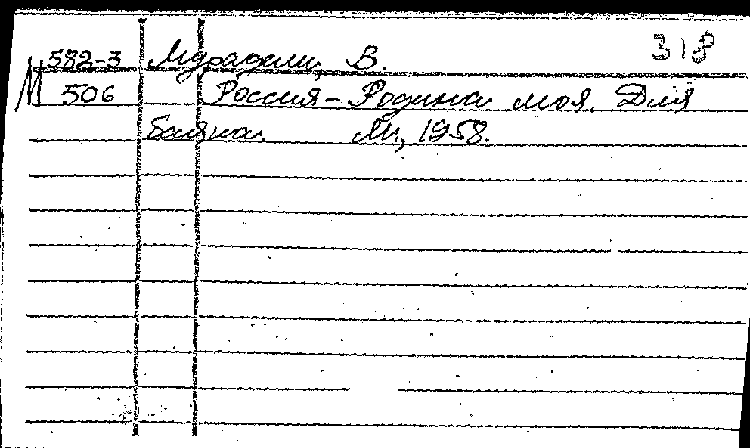 318
582-3 Мурадели, В.
М 506 Россия - Родина моя. Для
баяна. М., 1958.